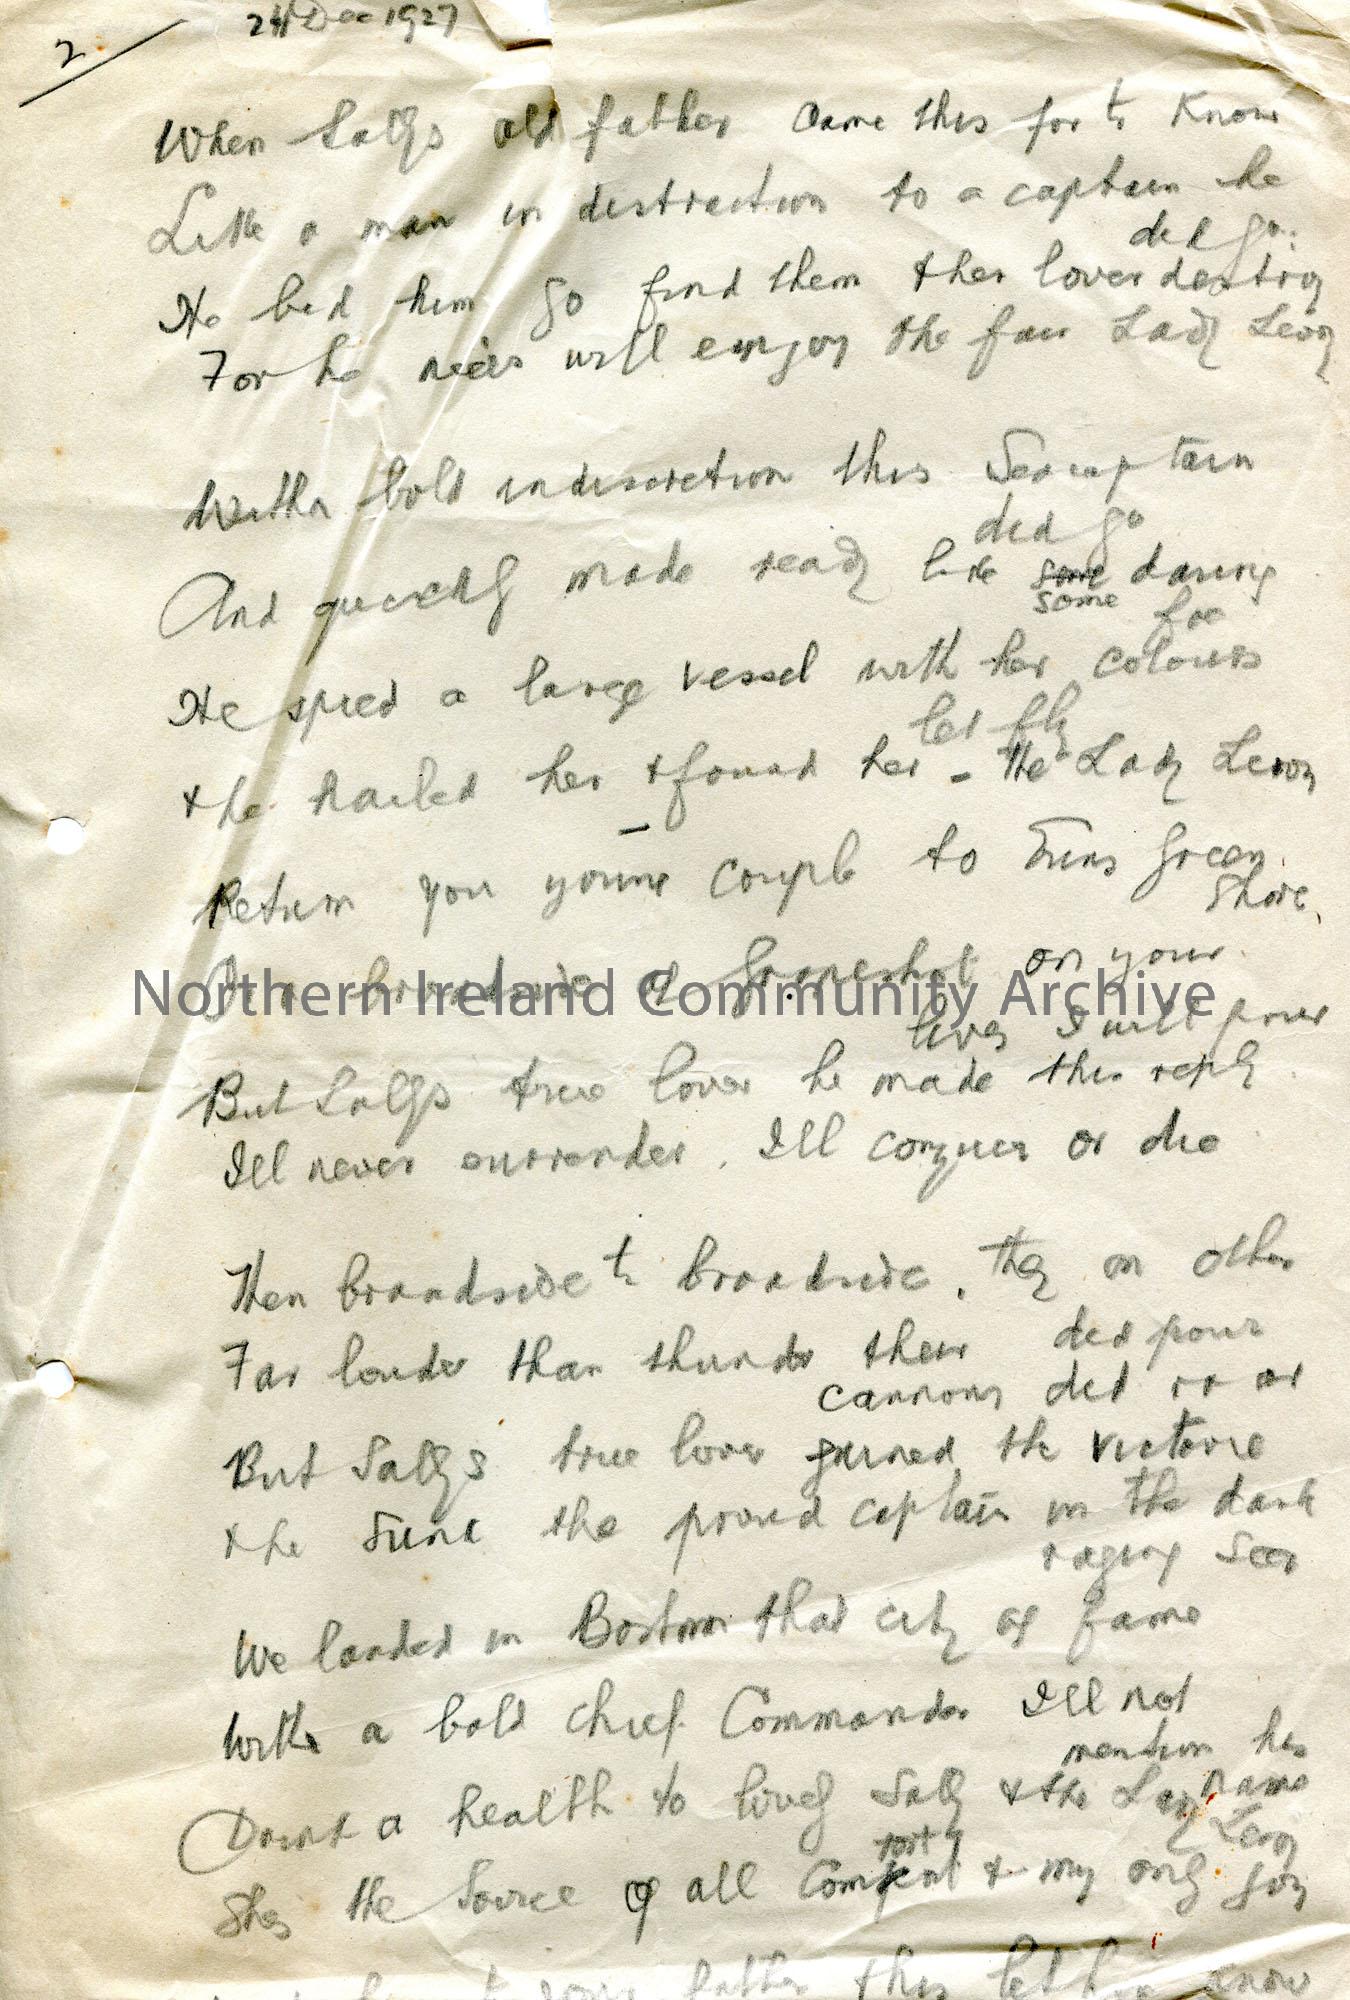 2
24 Dec 1927
When Sallys old father came this for to know
Like a man in distraction to a captain he
did go.
He bid him go find them & her lover destroy
For he never will enjoy the fair Lady Leroy
With a bold indiscretion this Seacaptain
did go
And quickly made ready like some daring
some foe
He spied a large vessel with her colours
let fly
& he hailed her & found her - the Lady Leroy
Return you young couple to Erins green
Shore,
Or a broadside of grapeshot on your
lives I will pour
But Sallys true lover he made this reply
Ill never surrender. Ill conquer or die
Then broadside to broadside, they on other
did pour
Far louder than thunder their
cannons did roar
But Sallys true lover gained the victorie
& he Sunk the proud captain in the dark
raging Sea
We landed in Boston that city of fame
With a bold chief Commander Ill not
mention his
name
Drink a health to lovely Sally & the Lady
Leroy
Shes the Source of all Comfort & my only joy
father this let him know
Northern Ireland Community Archive